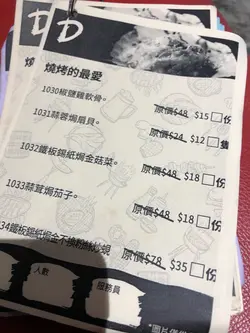 D D
燒烤的最愛
1030椒鹽雞軟骨。
原價$48 $15 份
1031蒜蓉焗扇貝。
原價$24 $12 隻
1032鐵板錫紙焗金菇菜。
原價$48 $18 份
1033蒜茸焗茄子。
原價$48 $18 份
34鐵板錫紙焗金不換粉絲
原價$78 $35 份
人數
服務員
*圖片僅供